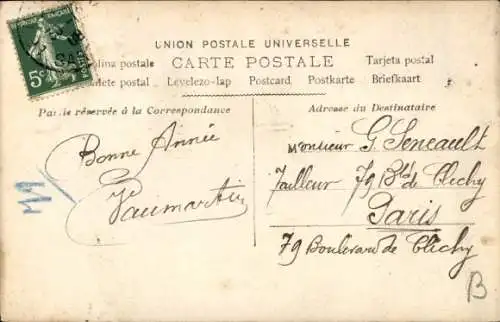 RÉPUBLIQUE FRANÇAISE
5c
UNION POSTALE UNIVERSELLE
CARTE POSTALE
lina postale
Tarjeta postal
tete postal Levelezo-lap Postcard Postkarte Briefkaart
Partie réservée à la Correspondance
Adresse du Destinataire
Bonne Année
Vaumartin
11
Monsieur G. Seneault
Tailleur 79 Bd de Clichy
Paris
79 Boulevard de Clichy
B